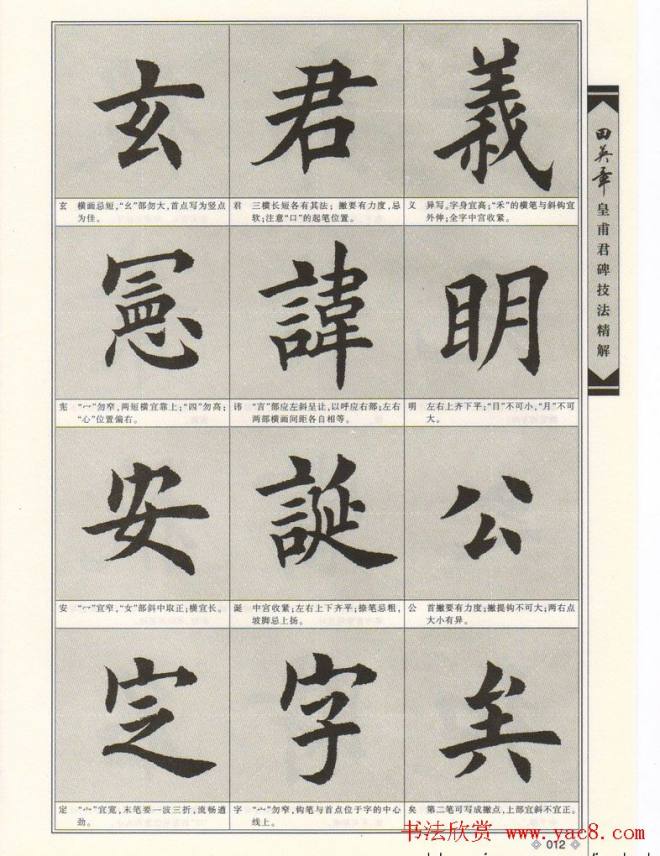 田英章 皇甫君碑技法精解
義
义 异写。字身宜高;“禾”的横笔与斜钩宜
外伸;全字中宫收紧。
明
明 左右上齐下平;“日”不可小,“月”不可
大。
公
公 首撇要有力度;撇提钩不可大;两右点
大小有异。
矣
矣 第二笔可写成撇点,上部宜斜不宜正。
君
君 三横长短各有其法;撇要有力度,忌
软;注意“口”的起笔位置。
諱
讳 “言”部应左斜呈让,以呼应右部;左右
两部横画间距各自相等。
誕
诞 中宫收紧;左右上下齐平;捺笔忌粗,
坡脚忌上扬。
字
字 “宀”勿窄,钩笔与首点位于字的中心
线上。
玄
玄 横画忌短,“幺”部勿大,首点写为竖点
为佳。
憲
宪 “冖”勿窄,两短横宜靠上;“四”勿高;
“心”位置偏右。
安
安 “宀”宜窄,“女”部斜中取正;横宜长。
定
定 “宀”宜宽,末笔要一波三折,流畅遒
劲。
012
书法欣赏 www.yac8.com